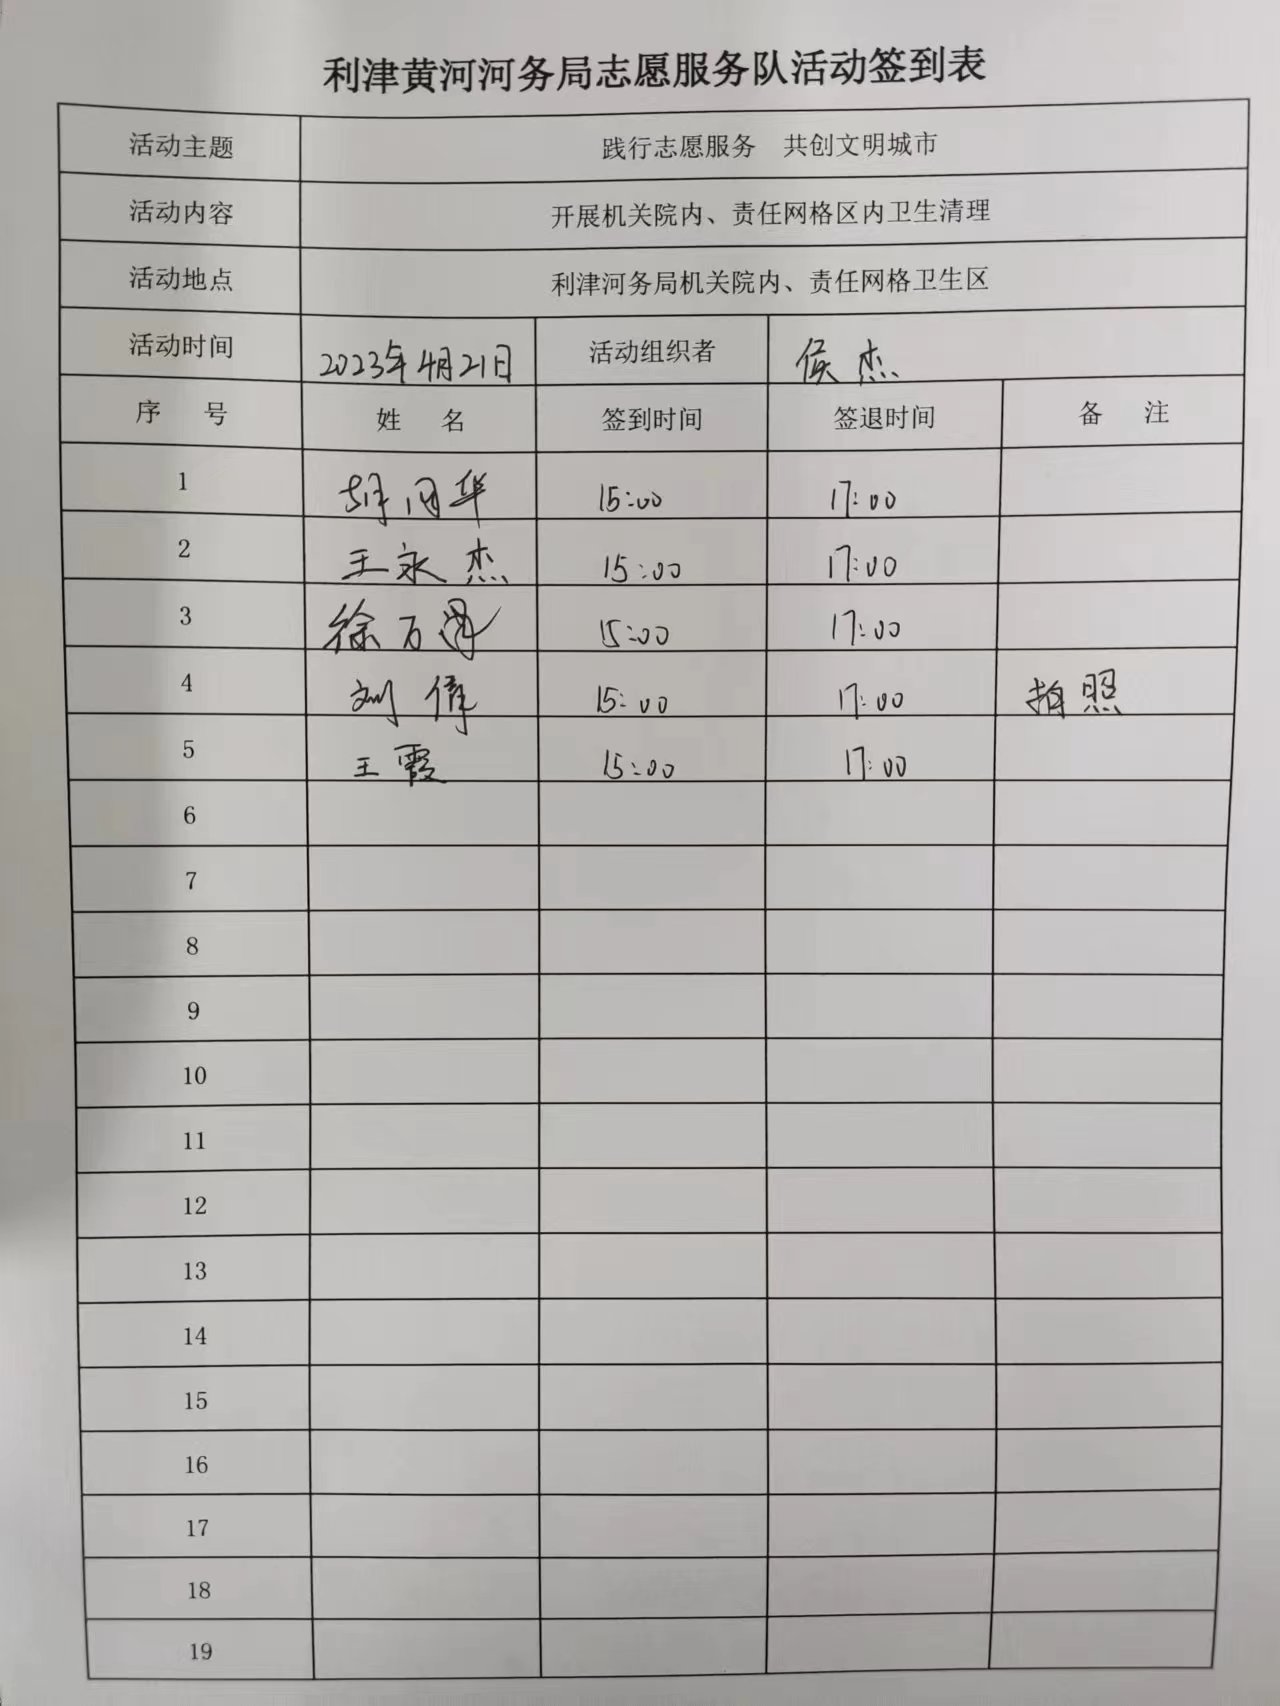 利津黄河河务局志愿服务队活动签到表
活动主题 践行志愿服务 共创文明城市
活动内容 开展机关院内、责任网格区内卫生清理
活动地点 利津河务局机关院内、责任网格卫生区
活动时间 2023年4月21日 活动组织者 侯杰
序 号 姓 名 签到时间 签退时间 备 注
1 15:00 17:00
2 王永杰 15:00 17:00
3 徐万 15:00 17:00
4 刘伟 15:00 17:00 拍照
5 王霞 15:00 17:00
6
7
8
9
10
11
12
13
14
15
16
17
18
19